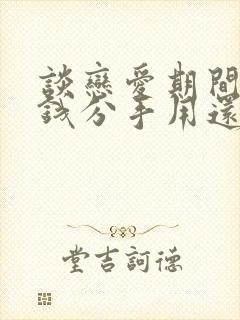 談戀愛期間
錢分手用還
堂吉訶德